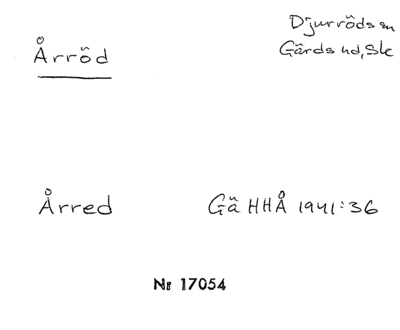 Djurröds sn
Årröd
Gärds hd, Sk
Årred Gä HHÅ 1941:36
Nr 17054